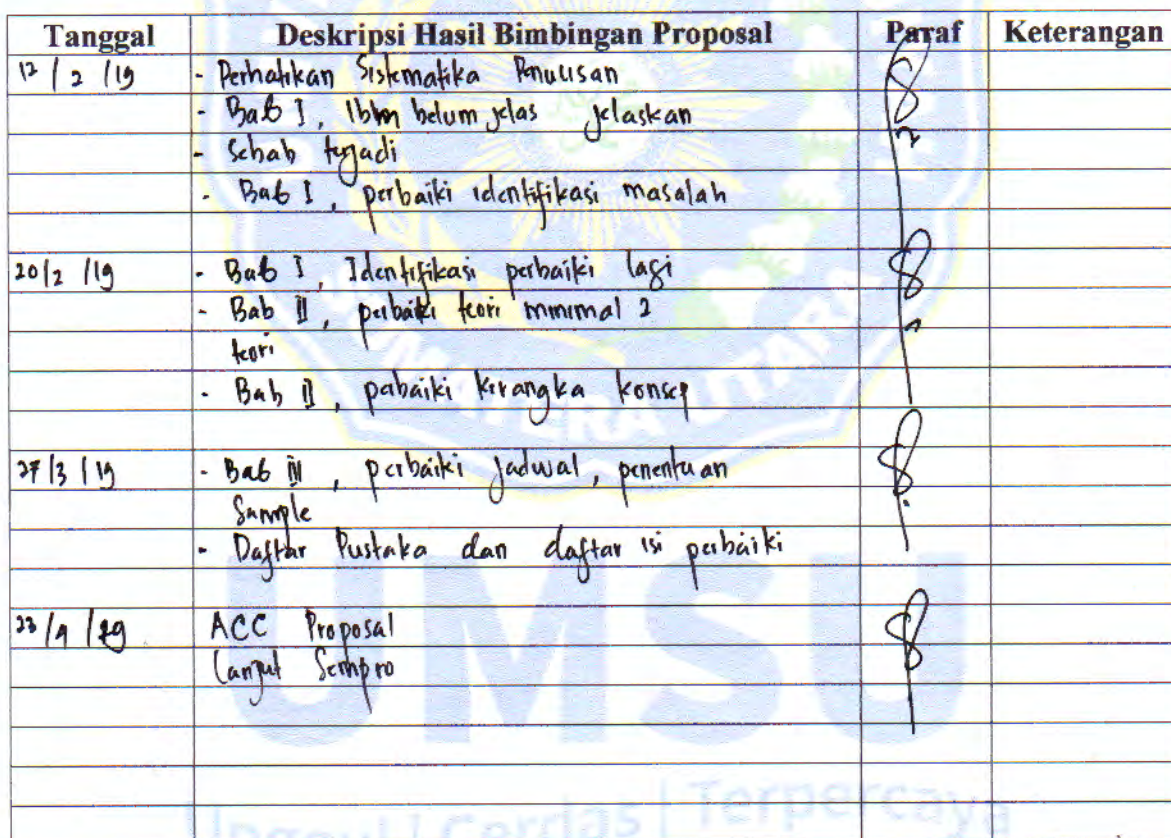 Tanggal Deskripsi Hasil Bimbingan Proposal Paraf Keterangan
12 / 2 / 19 - Perhatikan Sistematika Penulisan
- Bab I, lbm belum jelas jelaskan
- Sebab terjadi
- Bab I, perbaiki identifikasi masalah
20/2 /19 - Bab I, Identifikasi perbaiki lagi
- Bab II, perbaiki teori minimal 2
teori
- Bab II, perbaiki kerangka konsep
27/3/19 - Bab III, perbaiki jadwal, penentuan
Sample
- Daftar Pustaka dan daftar isi perbaiki
23/4/19 ACC Proposal
Lanjut Sempro
SUMATERA UTARA
UMSU
Unggul | Cerdas | Terpercaya